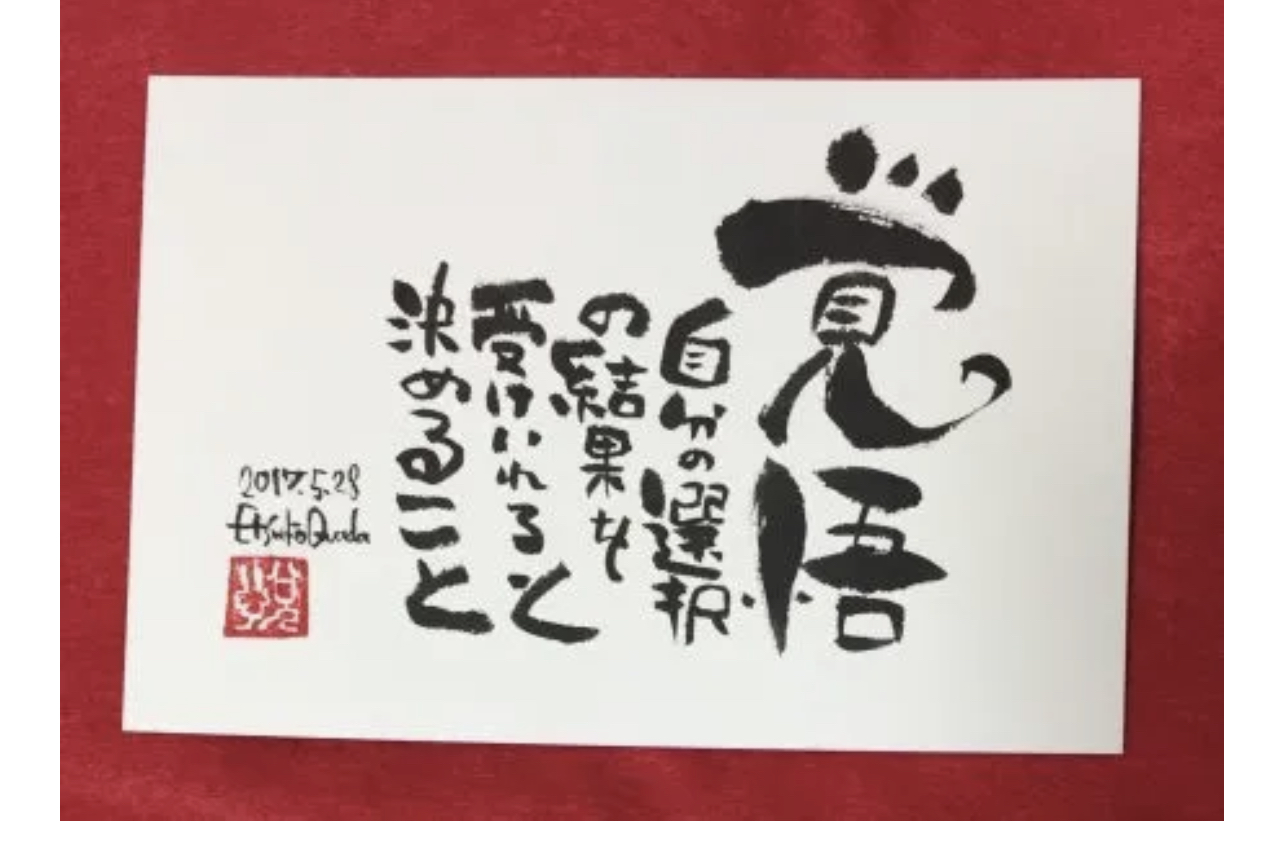 覚悟
自分の選択
の結果を
受けいれると
決めること
2017.5.28
Etsuko Ouada